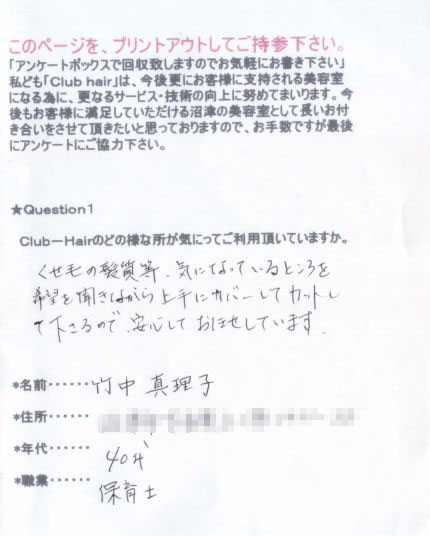 このページを、プリントアウトしてご持参下さい。
「アンケートボックスで回収致しますのでお気軽にお書き下さい」
私ども「Club hair」は、今後更にお客様に支持される美容室
になる為に、更なるサービス・技術の向上に努めてまいります。今
後もお客様に満足していただける沼津の美容室として長いお付
き合いをさせて頂きたいと思っておりますので、お手数ですが最後
にアンケートにご協力下さい。
★Question1
Club－Hairのどの様な所が気にってご利用頂いていますか。
くせ毛の髪質等、気になっているところを
希望を聞きながら上手にカバーしてカットし
て下さるので、安心しておまかせしています。
*名前・・・・・・竹中 真理子
*住所・・・・・・
*年代・・・・・・40代
*職業・・・・・・保育士